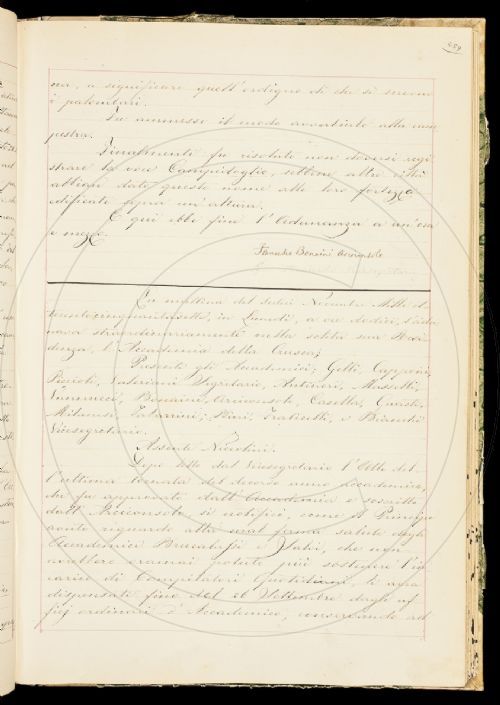 459
na, a significare quell'ordigno di che si servono
i palombari.
Fu ammesso il modo avverbiale alla
Finalmente fu risoluto non doversi regi
strare la voce Campidoglio, sebbene altre città
abbian dato questo nome alle loro fortezze
edificate sopra un'altura.
E qui ebbe fine l'Adunanza a un'ora
e mezzo.
Francesco Bonaini Arciconsolo
La mattina del sedici Novembre Mille ot
tocentocinquantasette, in Lunedì, a ore dodici, s'adu
nava straordinariamente nella solita sua Resi
denza, l'Accademia della Crusca;
Presenti gli Accademici; Gelli, Capponi,
Segretario,
Vannucci, Bonaini, Arciconsolo, Casella,
Milanesi, Tabarrini, Fraticelli, e Bianchi
Vicesegretario.
Assente Niccolini.
Dopo letto dal Vicesegretario l'Atto del
l'ultima tornata del decorso anno accademico,
che fu approvato dall'Accademia e soscritto
dall'Arciconsolo si notificò, come il Principe
avuto riguardo alla mal ferma salute degli
Accademici Brucalassi e che non
avrebbero oramai potuto più sostenere l'in
carico di Compilatori quotidiani, li avea
dispensati fino dal 26 Settembre dagli uf
fici ordinari d'Accademico, conservando ad